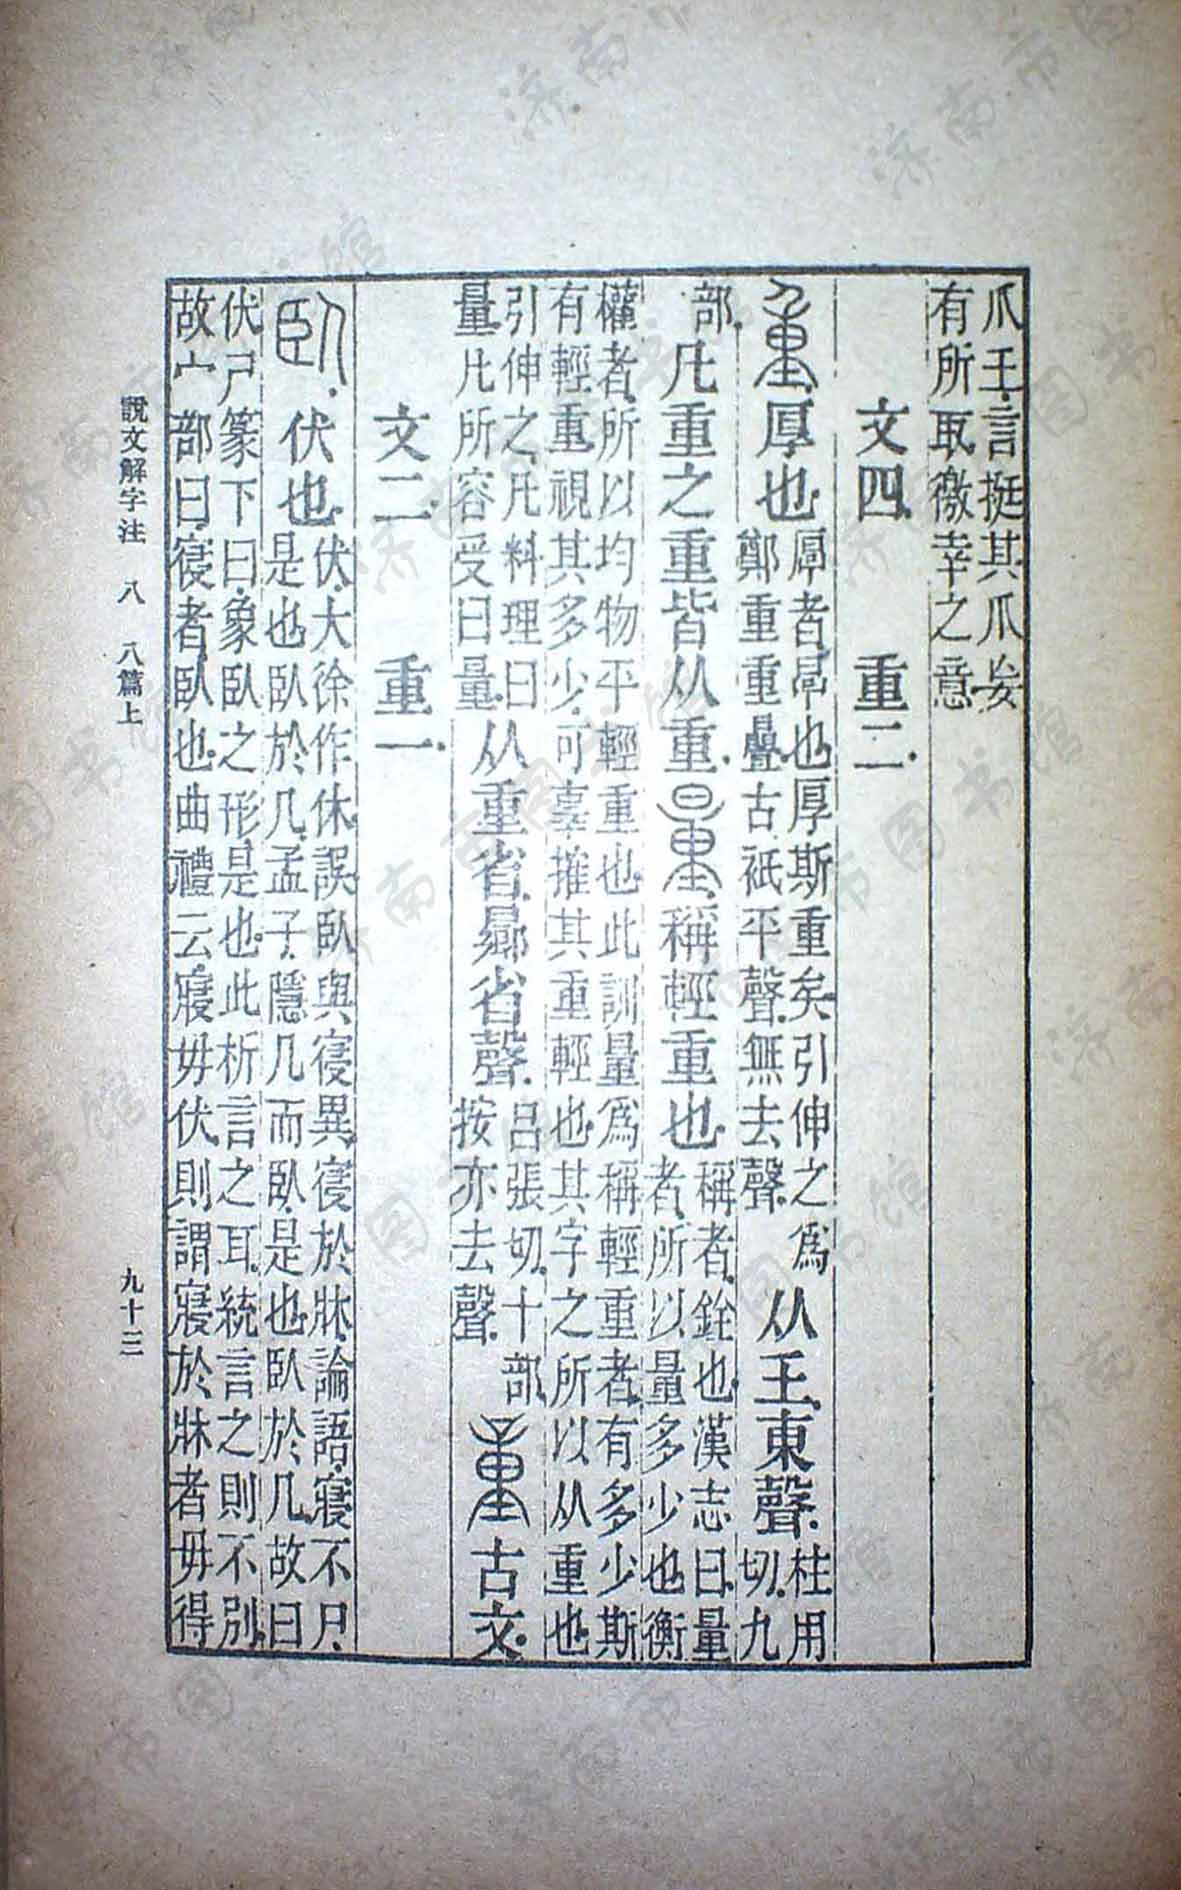 爪𡈼言挺其爪妄
有所取徼幸之意
文四 重二
重 厚也 厚者㫗也厚斯重矣引伸之爲
鄭重重疊古衹平聲無去聲 从𡈼東聲 柱用
切九
部 凡重之重皆从重 量 稱輕重也 稱者銓也漢志曰量
者所以量多少也衡
權者所以均物平輕重也此訓量爲稱輕重者有多少斯
有輕重視其多少可辜搉其重輕也其字之所以从重也
引伸之凡料理曰
量凡所容受曰量 从重省曏省聲 呂張切十部
按亦去聲 量 古文
文二 重一
臥 伏也 伏大徐作休誤臥與寑異寑於牀論語寢不尸
是也臥於几孟子隱几而臥是也臥於几故曰
伏尸篆下曰象臥之形是也此析言之耳統言之則不別
故宀部曰寑者臥也曲禮云寢毋伏則謂寢於牀者毋得
說文解字注 八 八篇上 九十三
济南市图书馆